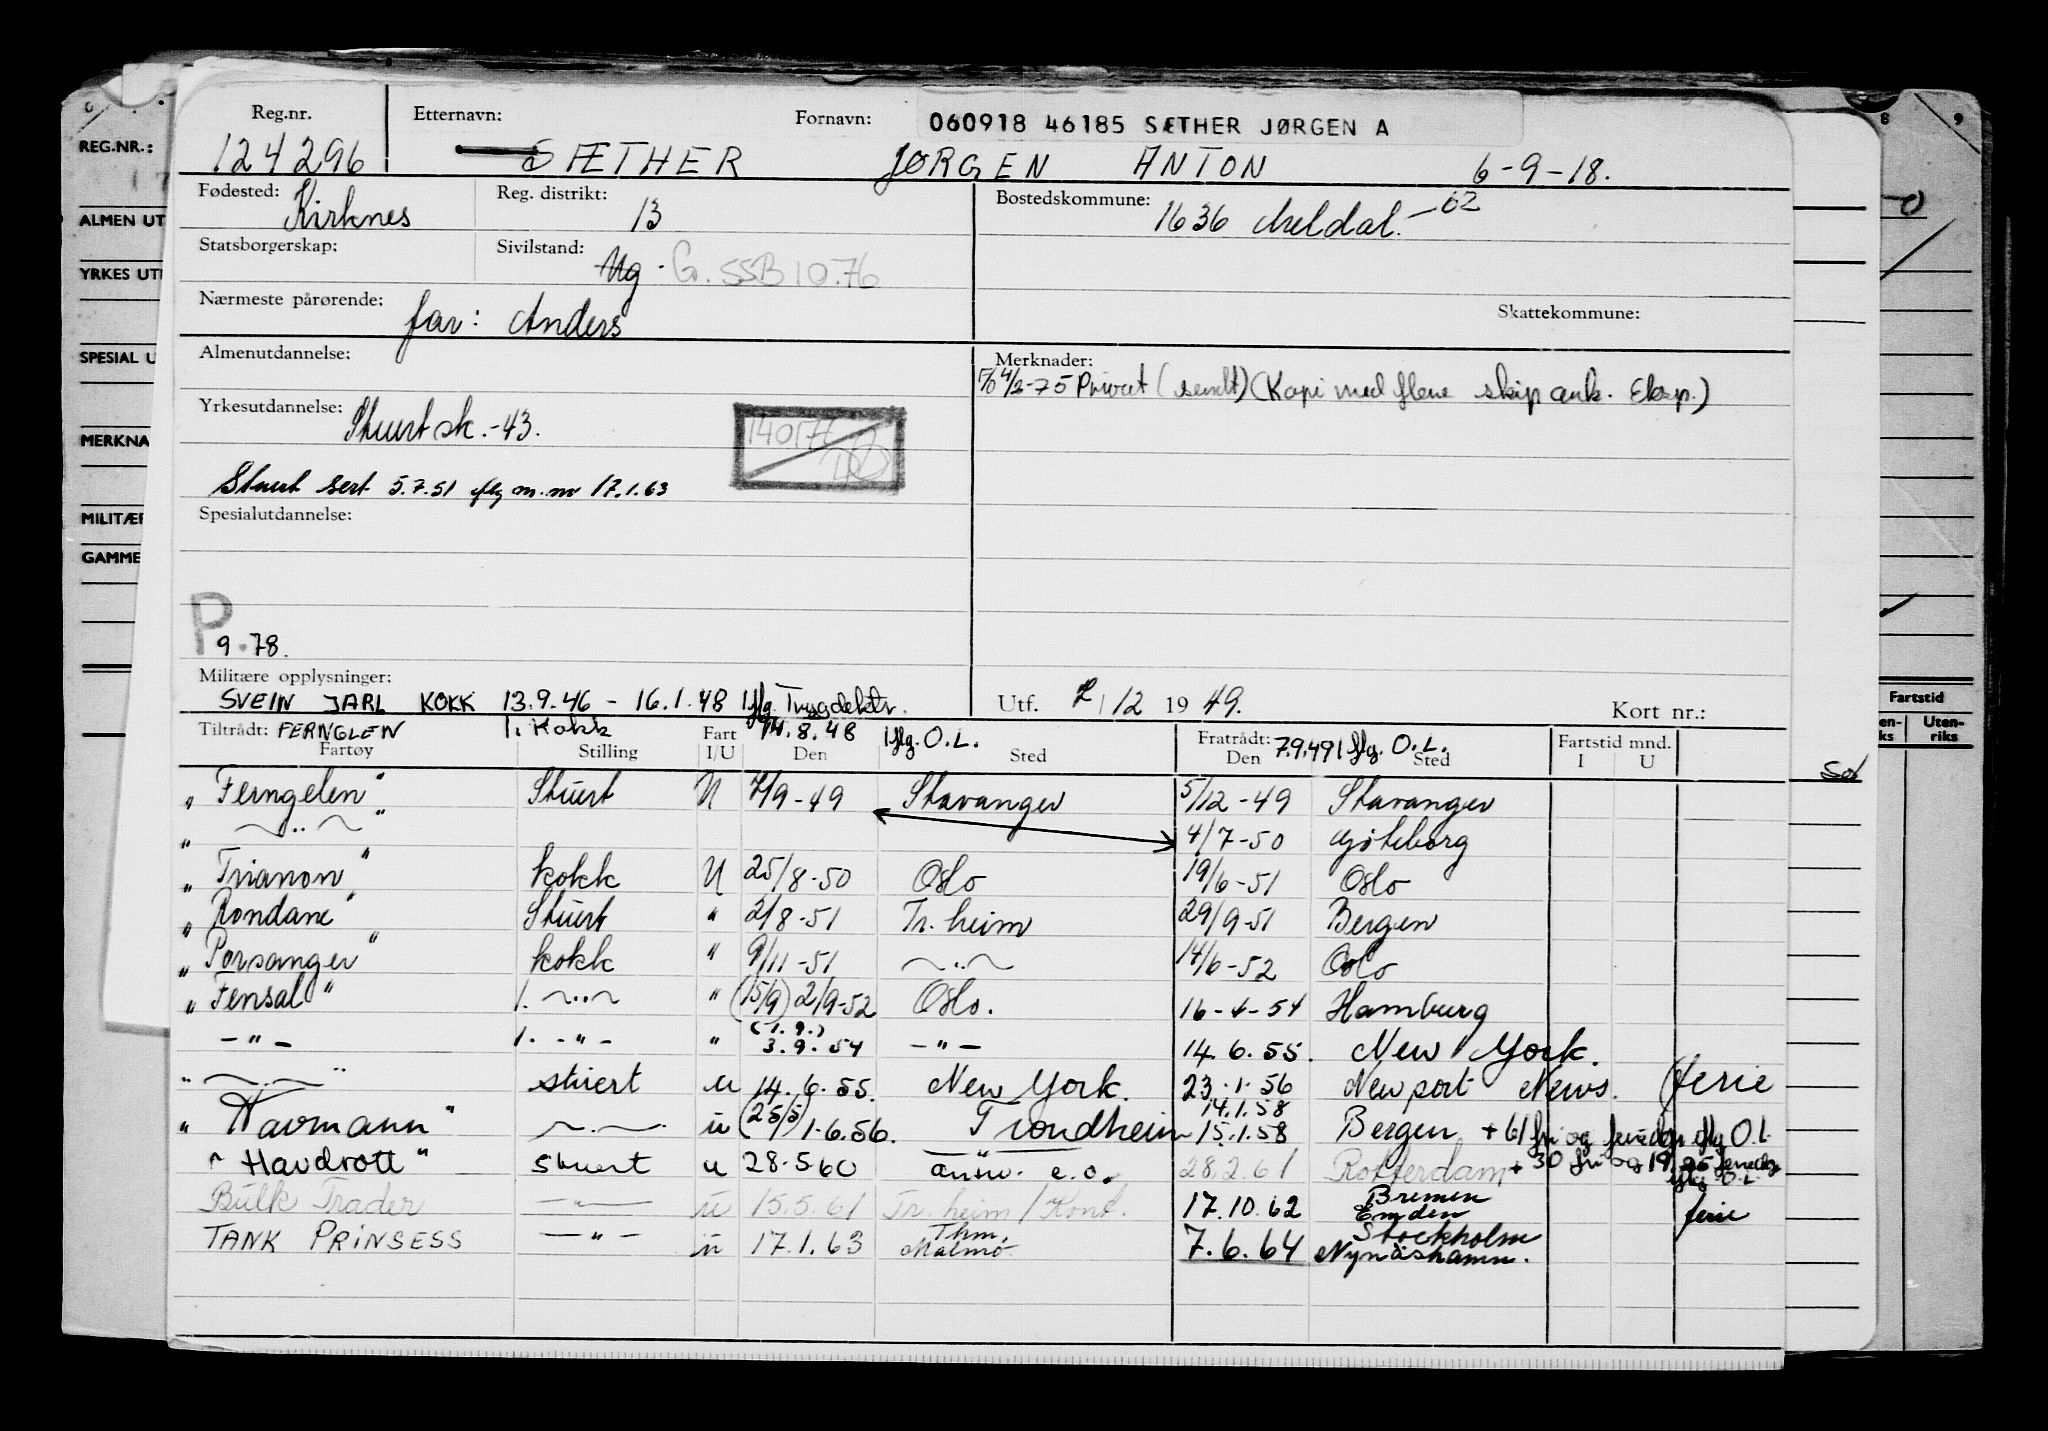 Reg.nr. Etternavn: Fornavn: 060918 46185 SÆTHER JØRGEN A
124296 SÆTHER JØRGEN ANTON 6-9-18.
Fødested: Kirknes Reg. distrikt: 13 Bostedskommune: 1636 Meldal. -62
Statsborgerskap: Sivilstand: Ug. G. SSB 10.76
Nærmeste pårørende: far: Anders Skattekommune:
Almenutdannelse: Merknader:
4/2-75 Privat (sendt) (Kopi med flere skip ank. Eksp.)
Yrkesutdannelse: Stuertsk. -43.
Stuert sert 5.7.51 iflg m.m 17.1.63
Spesialutdannelse:
P
9.78.
Militære opplysninger:
SVEIN JARL KOKK 13.9.46 - 16.1.48 iflg. Trygdektr. Utf. 2/12 1949. Kort nr.:
Tiltrådt: FERNGLEN 1. Kokk Fart 14.8.48 iflg. O.L. Fratrådt: 7.9.49 iflg. O.L. Fartstid mnd.
Fartøy Stilling I/U Den Sted Den Sted I U
"Ferngelen" Stuert U 7/9-49 Stavanger 5/12-49 Stavanger
" -..- " 4/7-50 Gøteborg
"Trianon" kokk U 25/8-50 Oslo 19/6-51 Oslo
"Rondane" Stuert " 2/8-51 Tr.heim 29/9-51 Bergen
"Porsanger" kokk " 9/11-51 -..- 14/6-52 Oslo
"Fensal" 1. -..- " (15/9) 2/9-52 Oslo. 16-4-54 Hamburg
- " - 1. - " - " (1.9.) 3.9.54 - " - 14.6.55. New York.
" -..- " stuert u 14.6.55. New York. 23.1.56 Newport News. (ferie
14.1.58
"Havmann" -..- u (25/5) 1.6.56. Trondheim 15.1.58 Bergen + 61 fri og feriedgr iflg O.L.
"Havdrott" stuert u 28.5.60 ank. e.o. 28.2.61 Rotterdam + 30 fri og 19 feriedg iflg O.L.
Bulk Trader - " - u 15.5.61 Tr.heim/Kont. 17.10.62 Bremen Emden ferie
TANK PRINSESS - " - u 17.1.63 Thm. Malmø 7.6.64 Stockholm Nynäshamn.
REG.NR.:
ALMEN UT
YRKES UT
SPESIAL U
MERKNA
MILITÆR
GAMME
8 9
Fartstid
Uten-
riks